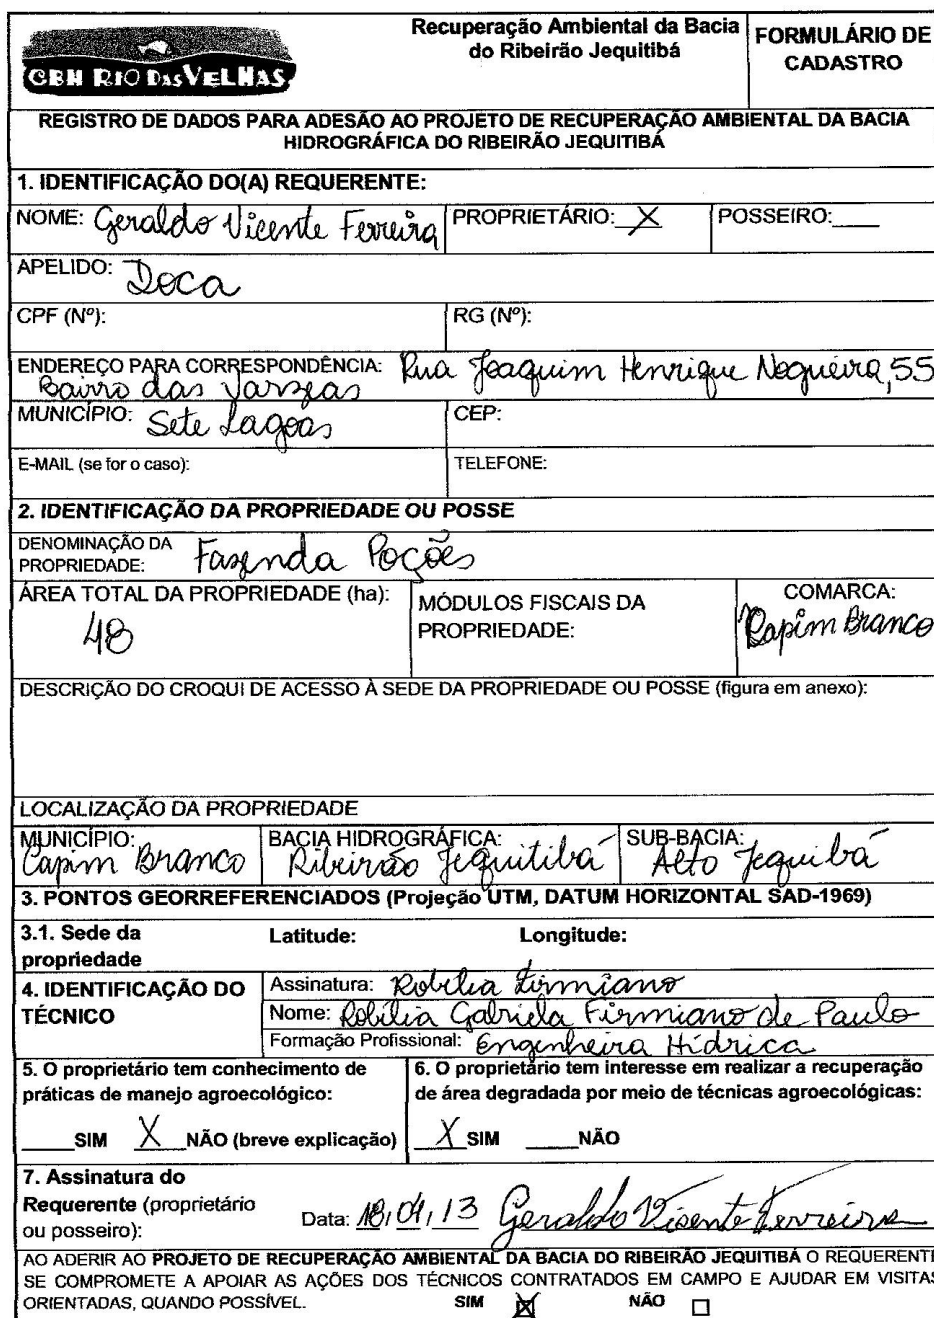 CBH RIO DAS VELHAS
Recuperação Ambiental da Bacia do Ribeirão Jequitibá
FORMULÁRIO DE CADASTRO
REGISTRO DE DADOS PARA ADESÃO AO PROJETO DE RECUPERAÇÃO AMBIENTAL DA BACIA
HIDROGRÁFICA DO RIBEIRÃO JEQUITIBÁ
1. IDENTIFICAÇÃO DO(A) REQUERENTE:
NOME: Geraldo Vicente Ferreira PROPRIETÁRIO: X POSSEIRO:____
APELIDO: Doca
CPF (Nº): RG (Nº):
ENDEREÇO PARA CORRESPONDÊNCIA: Rua Joaquim Henrique Nogueira, 55
Bairro das Varzeas
MUNICÍPIO: Sete Lagoas CEP:
E-MAIL (se for o caso): TELEFONE:
2. IDENTIFICAÇÃO DA PROPRIEDADE OU POSSE
DENOMINAÇÃO DA
PROPRIEDADE: Fazenda Poções
ÁREA TOTAL DA PROPRIEDADE (ha):
48
MÓDULOS FISCAIS DA
PROPRIEDADE:
COMARCA:
Capim Branco
DESCRIÇÃO DO CROQUI DE ACESSO À SEDE DA PROPRIEDADE OU POSSE (figura em anexo):
LOCALIZAÇÃO DA PROPRIEDADE
MUNICÍPIO: Capim Branco
BACIA HIDROGRÁFICA: Ribeirão Jequitibá
SUB-BACIA: Alto Jequibá
3. PONTOS GEORREFERENCIADOS (Projeção UTM, DATUM HORIZONTAL SAD-1969)
3.1. Sede da
propriedade
Latitude: Longitude:
4. IDENTIFICAÇÃO DO
TÉCNICO
Assinatura: Robélia Firmiano
Nome: Robélia Gabriela Firmiano de Paula
Formação Profissional: Engenheira Hídrica
5. O proprietário tem conhecimento de
práticas de manejo agroecológico:
____SIM X NÃO (breve explicação)
6. O proprietário tem interesse em realizar a recuperação
de área degradada por meio de técnicas agroecológicas:
X SIM ____NÃO
7. Assinatura do
Requerente (proprietário
ou posseiro):
Data: 18,04,13 Geraldo Visente Ferreira
AO ADERIR AO PROJETO DE RECUPERAÇÃO AMBIENTAL DA BACIA DO RIBEIRÃO JEQUITIBÁ O REQUERENTE
SE COMPROMETE A APOIAR AS AÇÕES DOS TÉCNICOS CONTRATADOS EM CAMPO E AJUDAR EM VISITAS
ORIENTADAS, QUANDO POSSÍVEL. SIM ☒ NÃO ☐